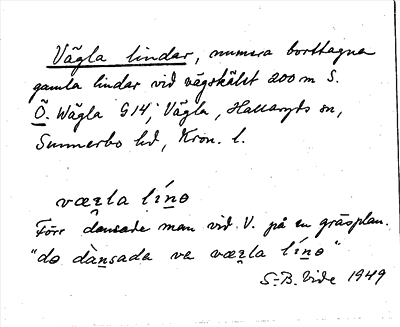 Vägla lindar, numera borttagna
gamla lindar vid vägskälet 200 m S.
Ö. Wägla G14; Vägla, Hallaryds sn,
Sunnerbo hd, Kron. l.
væɀla lí́nə
Förr dansade man vid V. på en gräsplan.
"də dànsada va væɀla lí́nə"
S-B. Vide 1949